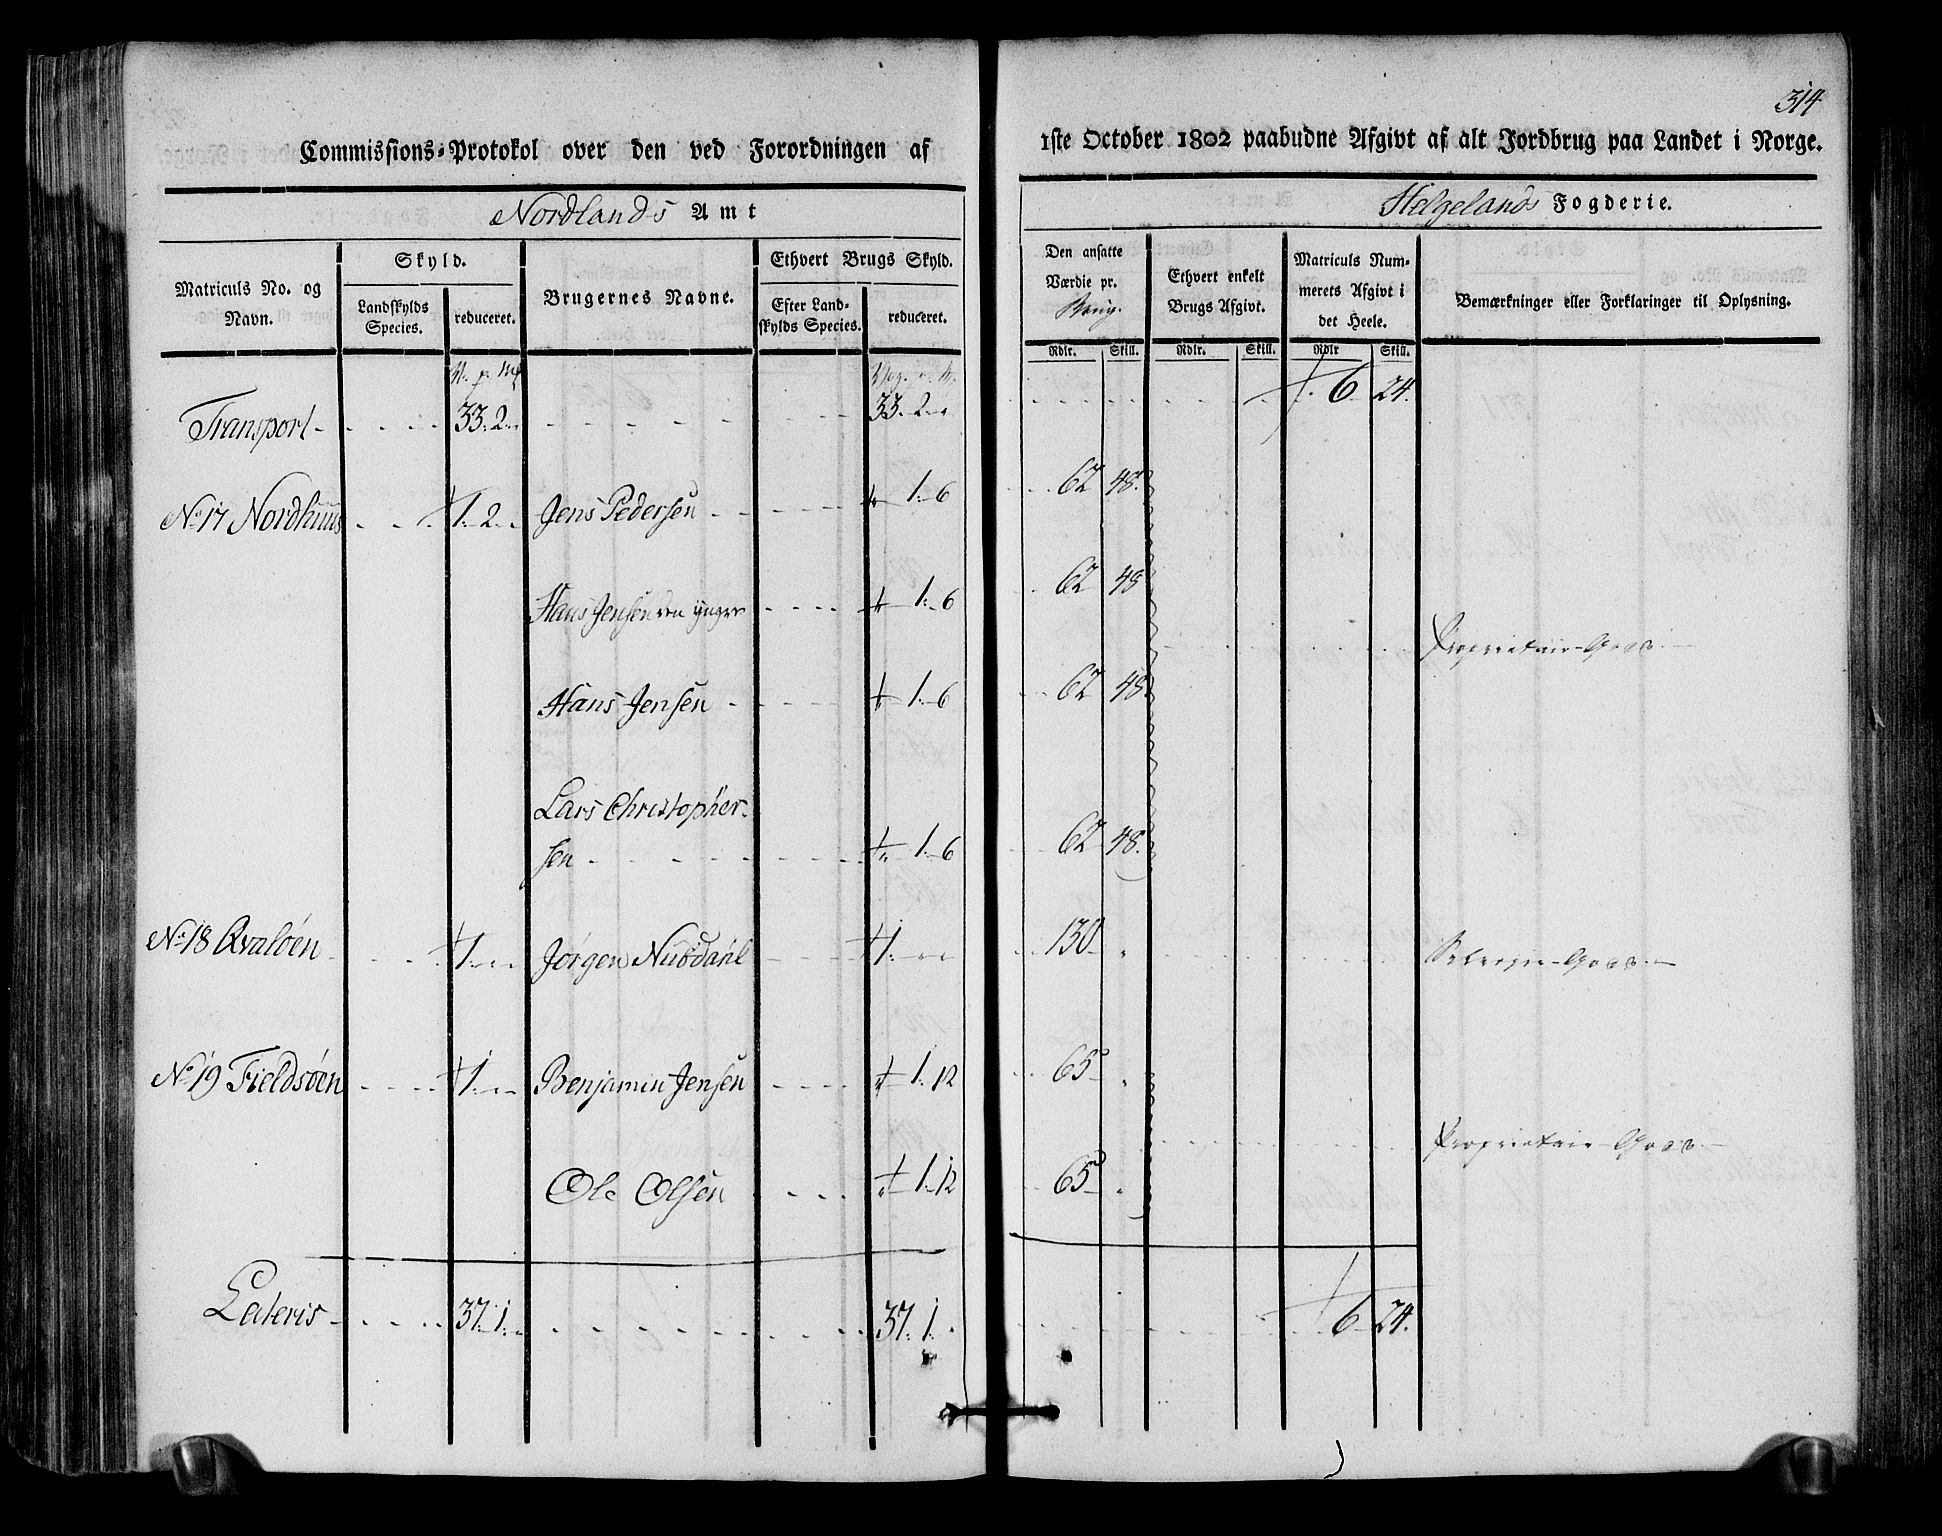 314
Commissions-Protokol over den ved Forordningen af
1ste October 1802 paabudne Afgivt af alt Jordbrug paa Landet i Norge.
Nordlands Amt
Helgelands Fogderie.
Matriculs No. og Navn.
Skyld.
Landskylds Species.
reduceret.
Brugernes Navne.
Ethvert Brugs Skyld.
Efter Landskylds Species.
reduceret.
Den ansatte Værdie pr.
Ethvert enkelt Brugs Afgivt.
Matriculs Nummerets Afgivt i det Heele.
Bemærkninger eller Forklaringer til Oplysning.
Rdlr. Skill. Rdlr. Skill. Rdlr Skill.
Transport 33. 2. 33. 2. 6 24.
No 17 Nordhuus 1. 2. Jens Pedersen 1. 6 62 48.
Hans Jensen den yngre 1. 6 62 48
Proprietair-Gods.
Hans Jensen 1. 6 62 48.
Lars Christopher-
sen 1. 6 62 48.
No 18 Qvaløen 1. Jørgen Nusdahl 1. 130 "
Gods.
No 19 Fieldsøen 1. Benjamin Jensen 1. 12 65 "
Proprietair-Gods.
Ole Olsen 1. 12 65 "
Lateris 37. 1. 37. 1. 6 24.